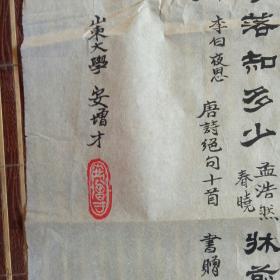 落知多少 孟浩然
春曉
床前
李白夜思
唐詩絕句十首 書贈
山東大學 安增才